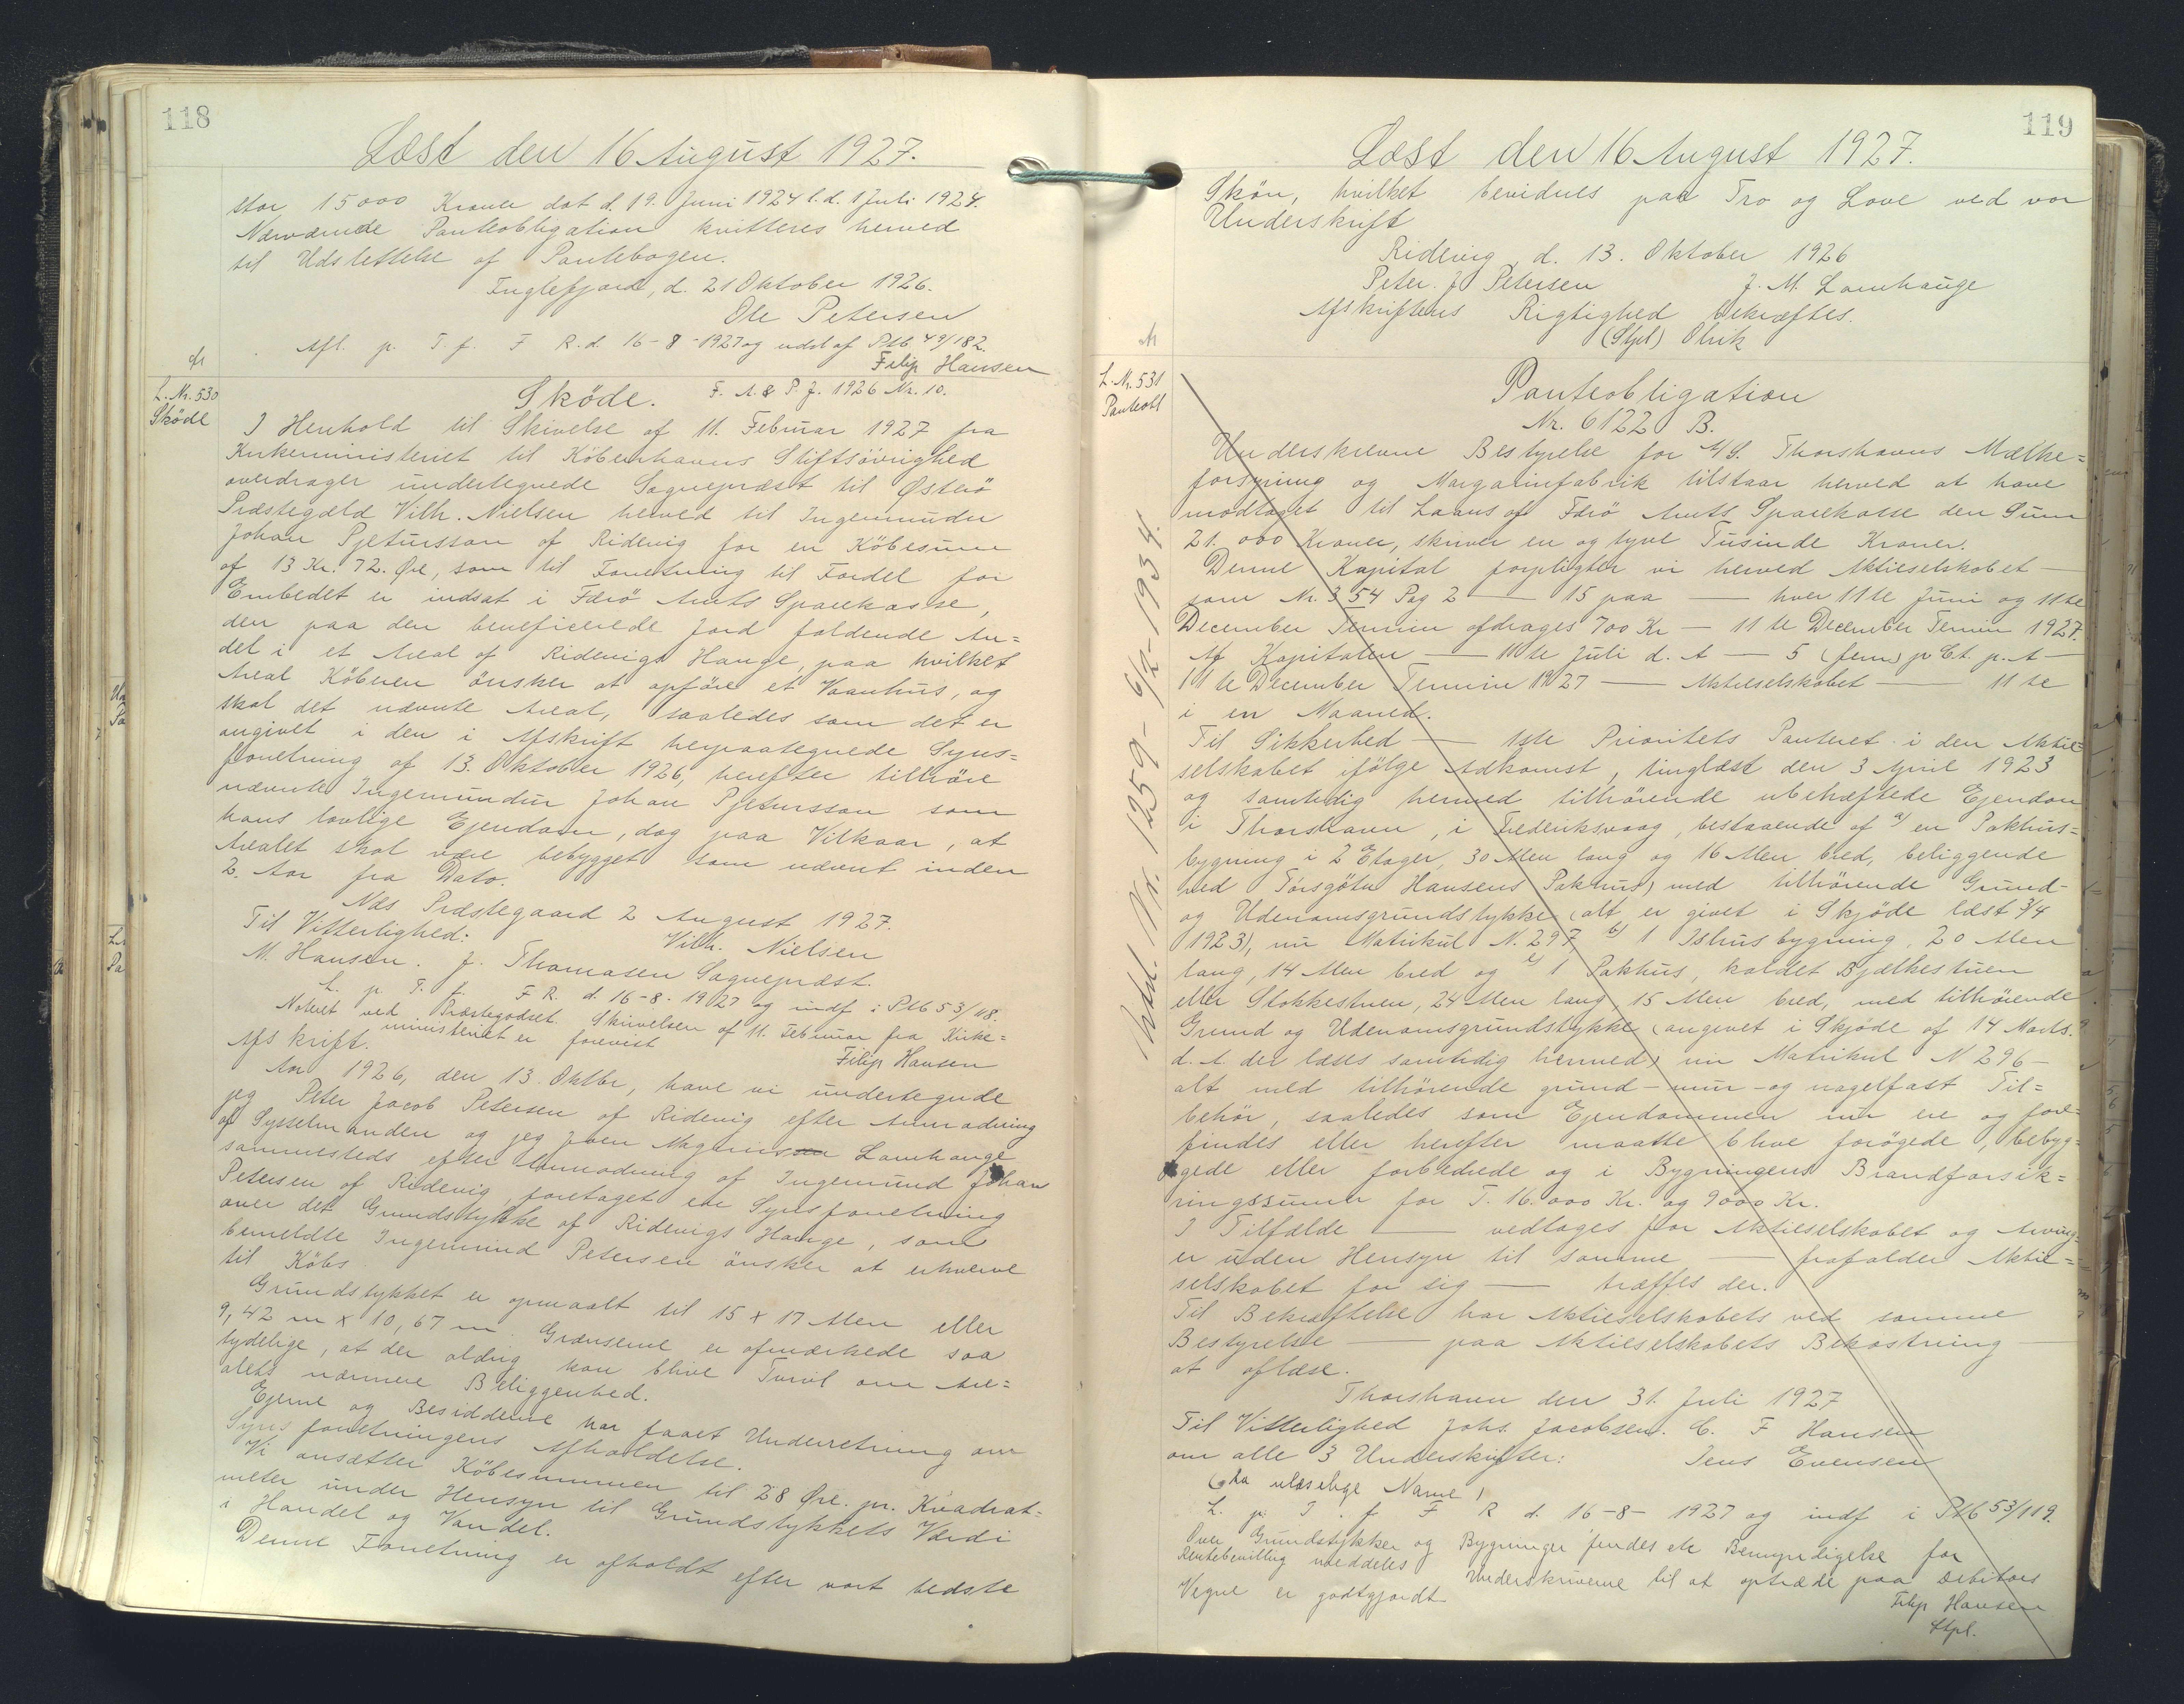 118
Læst den 16 August 1927.
stor 15000 Kroner dat d. 19. Juni 1924 l. d. 1 Juli 1924.
Nærværende Panteobligation kvitteres herved
til Udslettelse af Pantebogen.
Fuglefjord, d. 21 Oktober 1926.
Ole Petersen
Afl. p. T. f. F R. d. 16-8-1927 og udsl af Ptb 49/182.
Filip Hansen
L. Nr. 530
Skøde
Sköde. F. A. & P. J. 1926 Nr. 10.
I Henhold til Skivelse af 11. Februar 1927 fra
Kirkeministeriet til Københavns Stiftsövrighed
overdrager undertegnede Sognepræst til Østerö
Præstegæld Vilh. Nielsen herved til Ingemundur
Johan Pjetursson af Ridevig for en Köbesum
af 13 Kr. 72. Øre, som til Forretning til Fordel for
Embedet er indsat i Færö Amts Sparekasse,
den paa den beneficerede Jord faldende An=
del i et Areal af Ridevigs Hauge, paa hvilket
Areal Köberen önsker at opföre et Vaanhus, og
skal det nævnte Areal, saaledes som det er
angivet i den i Afskrift herpaategnede Syns=
forretning af 13. Oktober 1926, herefter tilhöre
nævnte Ingemundur Johan Pjetursson som
hans lovlige Ejendom, dog paa Vilkaar, at
Arealet skal være bebygget som nævnt inden
2. Aar fra Dato.
Næs Præstegaard 2 August 1927.
Til Vitterlighed: Vilh. Nielsen
M. Hansen. J. Thomasen Sognepræst.
L. p. T. f. F R. d. 16-8-1927 og indf i Ptb 53/118.
Noteret ved Præstegodset. Skrivelsen af 11. Februar fra Kirke=
ministeriet er forevist
Filip Hansen
Afskrift.
Aar 1926, den 13. Oktbr, have vi undertegnede
jeg Peter Jacob Petersen af Ridevig efter Anmodning
af Sysselmanden og jeg Joen Magnus Lamhauge
sammesteds efter Anmodning af Ingemund Johan
Petersen af Ridevig, foretaget en Synsforretning
over det Grundstykke af Ridevigs Hauge, som
bemeldte Ingemund Petersen önsker at erhverve
til Köbs
Grundstykket er opmaalt til 15 x 17 Alen eller
9,42 m x 10,67 m. Grænserne er afmærkede saa
tydelige, at der aldrig kan blive Tvivl om Are=
alets nærmere Beliggenhed.
Ejerne og Besidderne har faaet Underretning om
Synsforretningens Afholdelse.
Vi ansætter Købesummen til 28 Øre. pr. Kvadrat=
meter under Hensyn til Grundstykkets Værdi
i Handel og Vandel.
Denne Forretning er afholdt efter vort bedste
119
Læst den 16 August 1927.
Skön, hvilket bevidnes paa Tro og Love ved vor
Underskrift
Ridevig, d. 13. Oktober 1926
Peter. J Petersen J. M. Lamhauge
Afskriftens Rigtighed bekræftes.
(Stpl) Olrik
L. Nr. 531
Panteobl
Panteobligation
Nr. 6122 B.
Underskrevne Bestyrelse for A/S. Thorshavns Mælke=
forsyning og Margarinfabrik tilstaar herved at have
modtaget til Laans af Færö Amts Sparekasse den Sum
21.000 Kroner, skriver en og tyve Tusinde Kroner.
Denne Kapital forpligter vi herved Aktieselskabet —
som Nr. 354 Pag 2 — 15 paa — hver 11te Juni og 11te
December Termin afdrages 700 Kr — 11te December Termin 1927.
Af Kapitalen — 11te Juli d. A — 5 (fem) p Ct. p. A —
11te December Termin 1927 — Aktieselskabet — 11te
i en Maaned.
Til Sikkerhed — 1ste Prioritets Panteret i den Aktie=
selskabet ifölge Adkomst, tinglæst den 3 April 1923
og samtidig hermed tilhörende ubehæftede Ejendom
i Thorshavn, i Frederiksvaag, bestaaende af a) en Pakhus=
bygning i 2 Etager, 30 Alen lang og 16 Alen bred, beliggende
ved Törsgötu Hansens Pakhus, med tilhörende Grund-
og Udenomsgrundstykke (alt er givet i Skjøde læst 3/4
1923), nu Matrikul N. 297 b) 1 Ishusbygning, 20 Alen
lang, 14 Alen bred og c) 1 Pakhus, kaldet Bjælkestuen
eller Stokkestuen, 24 Alen lang, 15 Alen bred, med tilhörende
Grund og Udenomsgrundstykke (angivet i Skjøde af 14 Marts.
d. A. der læses samtidig hermed) nu Matrikul N 296 —
alt med tilhörende grund-mur-og nagelfast Til=
behör, saaledes som Ejendommen nu ere og fore=
findes eller herefter maatte blive forögede, bebyg=
gede eller forbedrede og i Bygningens Brandforsik=
ringssummer for T. 16.000 Kr. og 9000 Kr.
I Tilfælde — vedtages for Aktieselskabet og Arving=
er uden Hensyn til samme — frafalder Aktie=
selskabet for sig — træffes der.
Til Bekræftelse har Aktieselskabets ved samme
Bestyrelse — paa Aktieselskabets Bekostning —
at aflæse.
Thorshavn den 31. Juli 1927
Til Vitterlighed Johs. Jacobsen. C. F Hansen
om alle 3 Underskrifter: Jens Evensen
(to ulæselige Navne)
L. p. T. f. F R d. 16-8-1927 og indf i Ptb 53/119.
Over Grundstykker og Bygninger findes Bemyndigelse for
Rentebevilling meddeles Underskriverne til at optræde paa Debitors
Vegne er godtgjordt
Filip Hansen
Stpl.
Udsl. Nr. 1259 - 6/2 - 1934.